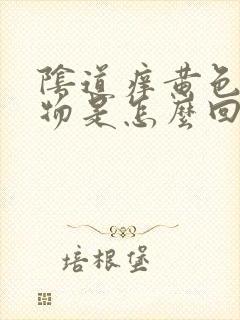 陰道痒黄色
物是怎麼回
培根堡